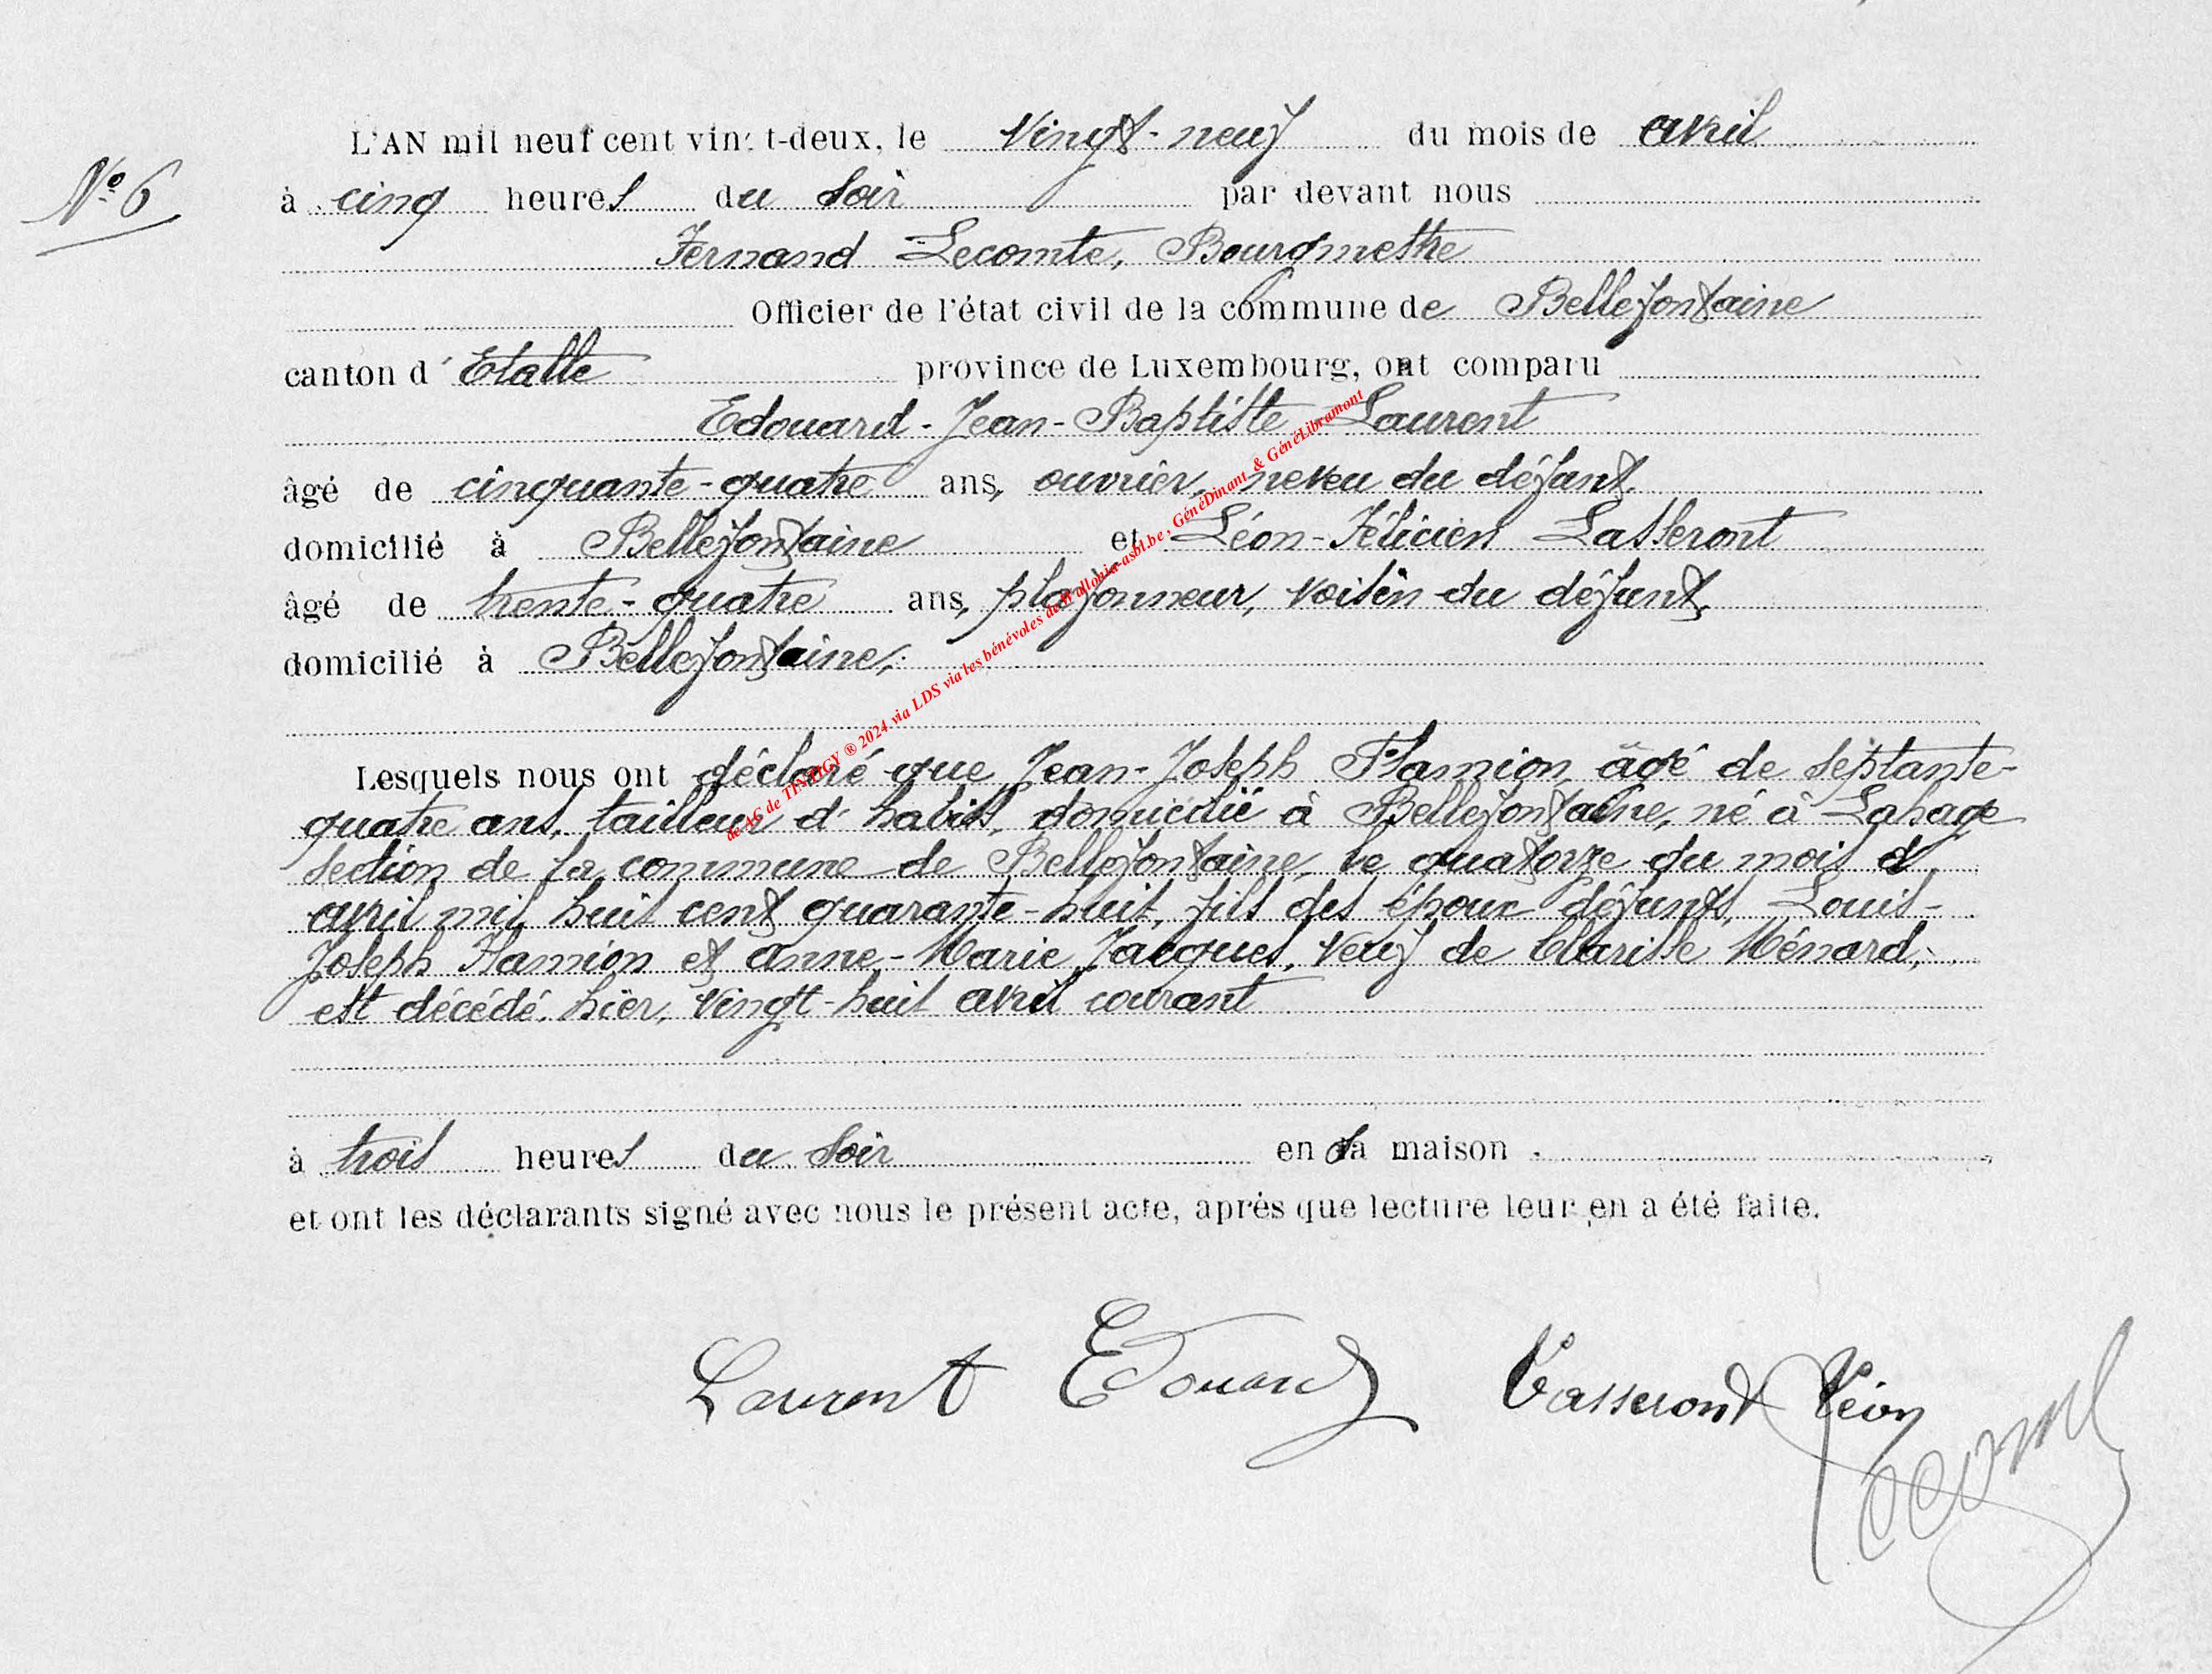 N° 6
L'AN mil neuf cent vingt-deux, le vingt-neuf du mois de avril
à cinq heures du soir par devant nous
Fernand Lecomte, Bourgmestre
Officier de l'état civil de la commune de Bellefontaine
canton d'Etalle province de Luxembourg, ont comparu
Edouard-Jean-Baptiste Laurent
âgé de cinquante-quatre ans, ouvrier, neveu du défunt,
domicilié à Bellefontaine et Léon-Félicien Lasseront
âgé de trente-quatre ans, plafonneur, voisin du défunt,
domicilié à Bellefontaine,
Lesquels nous ont déclaré que Jean-Joseph Flamion, âgé de septante-
quatre ans, tailleur d'habits, domicilié à Bellefontaine, né à Lahage
section de la commune de Bellefontaine, le quatorze du mois d'
avril mil huit cent quarante-huit, fils des époux défunts, Louis-
Joseph Flamion et Anne-Marie Jacques, veuf de Clarisse Ménard,
est décédé, hier, vingt-huit avril courant
à trois heures du soir en sa maison.
et ont les déclarants signé avec nous le présent acte, après que lecture leur en a été faite.
Laurent Edouard Lasseront Léon
Lecomte
de AG de TINTIGY ® 2024 via LDS via les bénévoles de Wallonia-asbl.be, GénéDinant & GénéLibramont